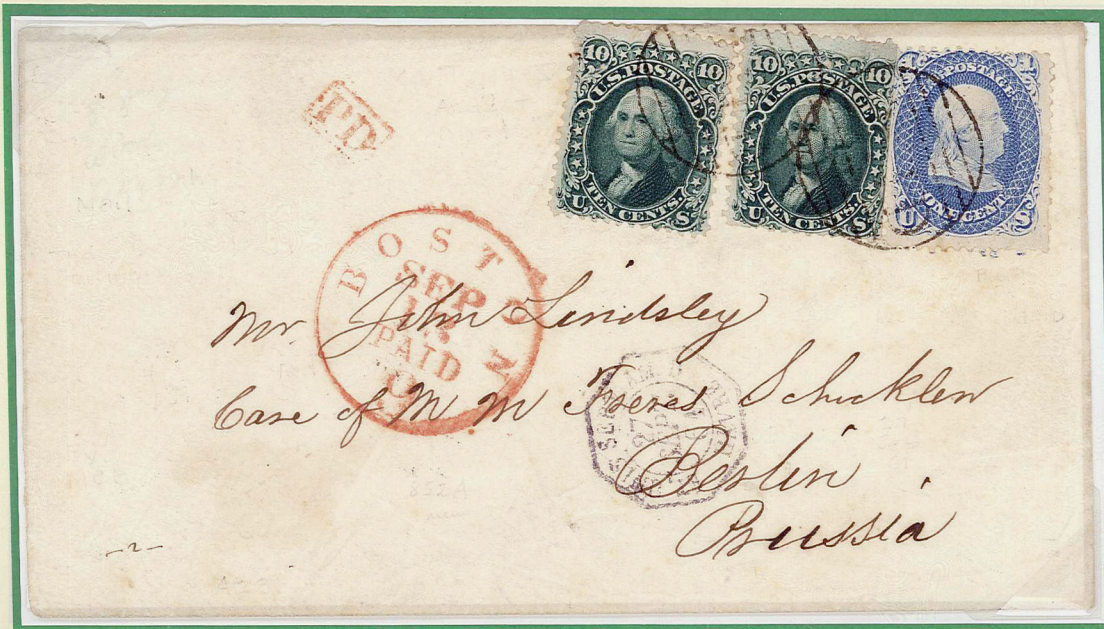 PD
10 10
U.S. POSTAGE
TEN CENTS.
U S
10 10
U.S. POSTAGE
TEN CENTS.
U S
1 1
POSTAGE
ONE CENT
U S
BOSTON
SEP
PAID
Mr. John Lindsley
Care of M M Freres Schickler
Berlin
Prussia
-2-
832A